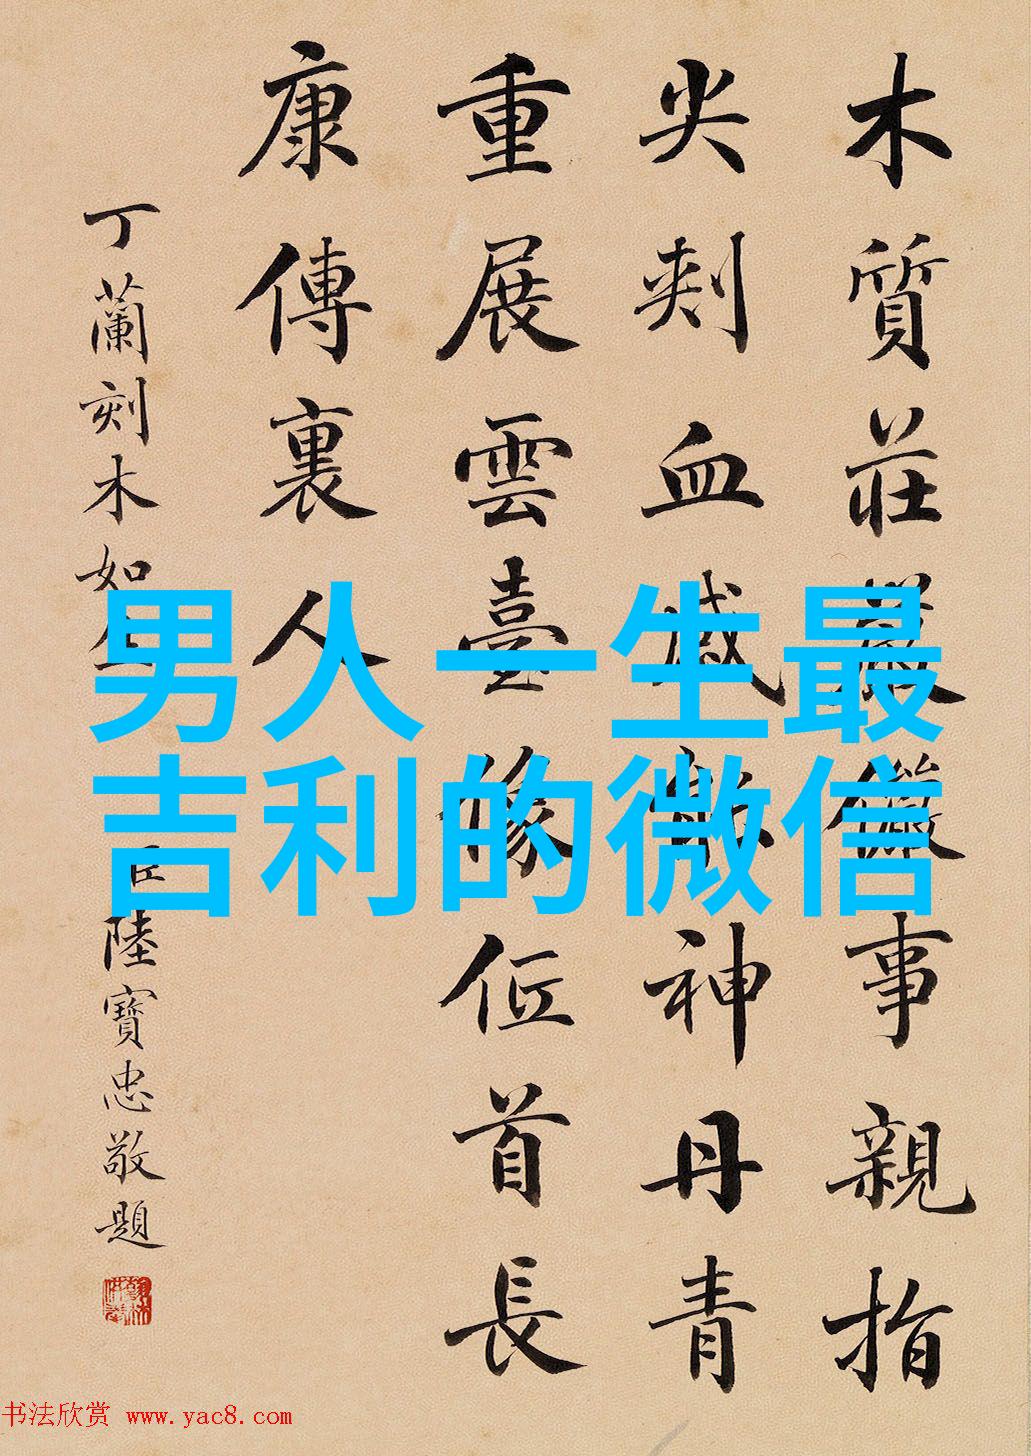 木質莊嚴儼事親指
尖刺血感能神丹青
重展雲臺像位首長
康傳裏人
丁蘭刻木如生
臣陸寶忠敬題
男人一生最
吉利的微信
书法欣赏 www.yac8.com